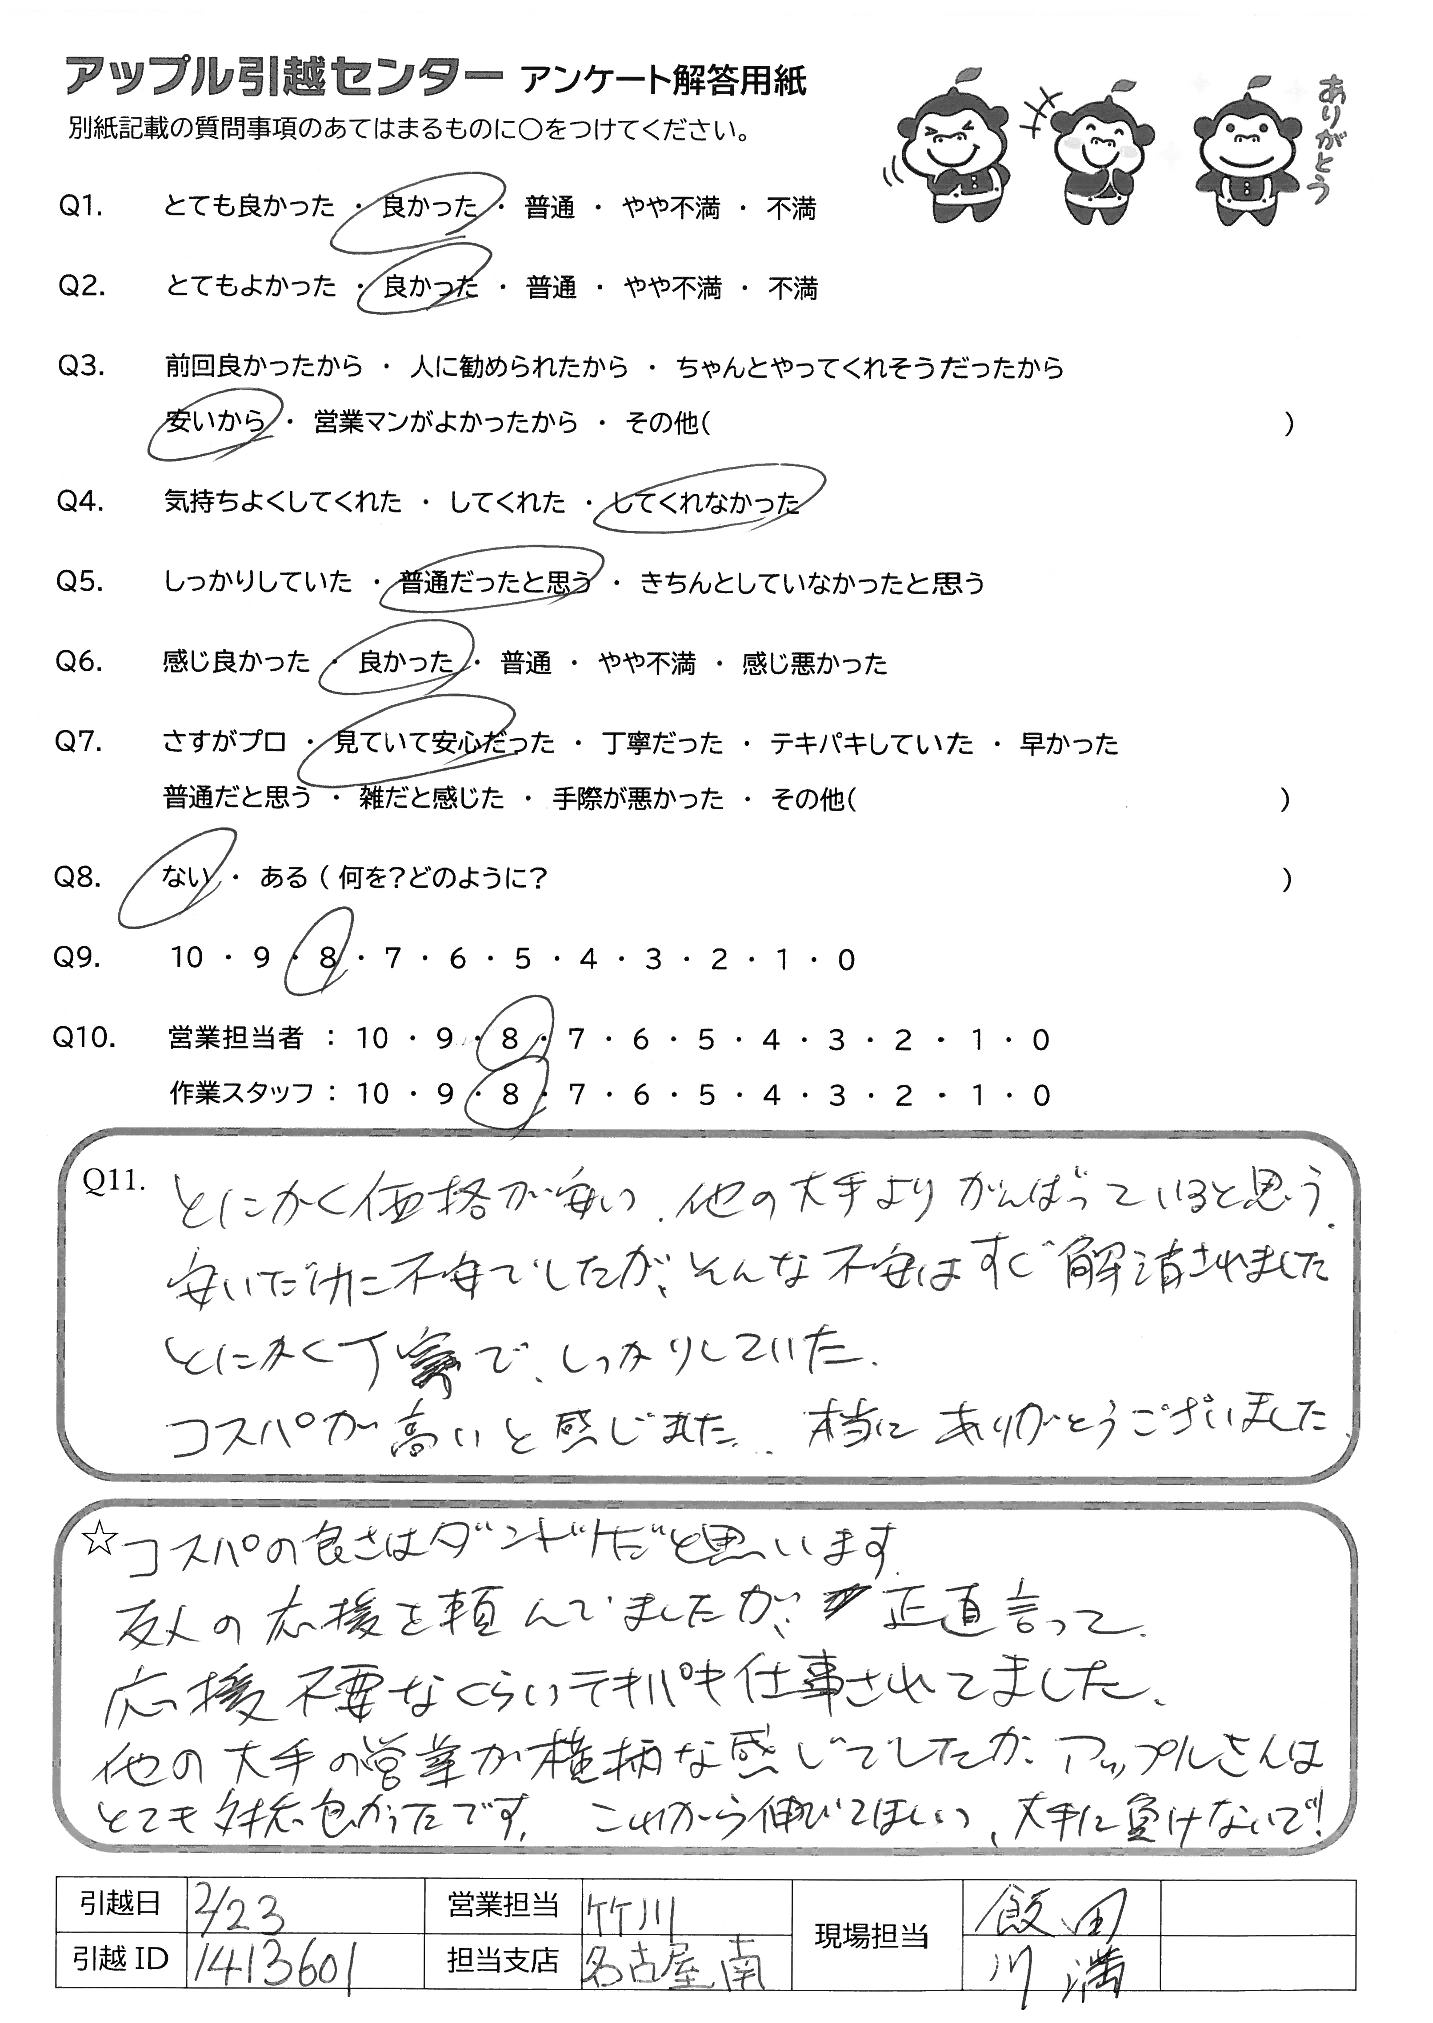 アップル引越センター アンケート解答用紙
ありがとう
別紙記載の質問事項のあてはまるものに○をつけてください。
Q1. とても良かった ・ 良かった ・ 普通 ・ やや不満 ・ 不満
Q2. とてもよかった ・ 良かった ・ 普通 ・ やや不満 ・ 不満
Q3. 前回良かったから ・ 人に勧められたから ・ ちゃんとやってくれそうだったから
安いから ・ 営業マンがよかったから ・ その他( )
Q4. 気持ちよくしてくれた ・ してくれた ・ してくれなかった
Q5. しっかりしていた ・ 普通だったと思う ・ きちんとしていなかったと思う
Q6. 感じ良かった ・ 良かった ・ 普通 ・ やや不満 ・ 感じ悪かった
Q7. さすがプロ ・ 見ていて安心だった ・ 丁寧だった ・ テキパキしていた ・ 早かった
普通だと思う ・ 雑だと感じた ・ 手際が悪かった ・ その他( )
Q8. ない ・ ある ( 何を?どのように? )
Q9. 10 ・ 9 ・ 8 ・ 7 ・ 6 ・ 5 ・ 4 ・ 3 ・ 2 ・ 1 ・ 0
Q10. 営業担当者 : 10 ・ 9 ・ 8 ・ 7 ・ 6 ・ 5 ・ 4 ・ 3 ・ 2 ・ 1 ・ 0
作業スタッフ : 10 ・ 9 ・ 8 ・ 7 ・ 6 ・ 5 ・ 4 ・ 3 ・ 2 ・ 1 ・ 0
Q11. とにかく価格が安い、他の大手よりがんばっていると思う。
安いだけに不安でしたが、そんな不安はすぐ解消されました
とにかく丁寧で、しっかりしていた。
コスパが高いと感じました。本当にありがとうございました。
☆コスパの良さはダントツだと思います。
友人の応援を頼んでいましたが、正直言って、
応援不要なくらいテキパキ仕事されてました。
他の大手の営業が横柄な感じでしたが、アップルさんは
とても対応良かったです。これから伸びてほしい、大手に負けないで!
引越日 2/23 営業担当 竹川 現場担当 飯田
引越ID 1413601 担当支店 名古屋南 川満